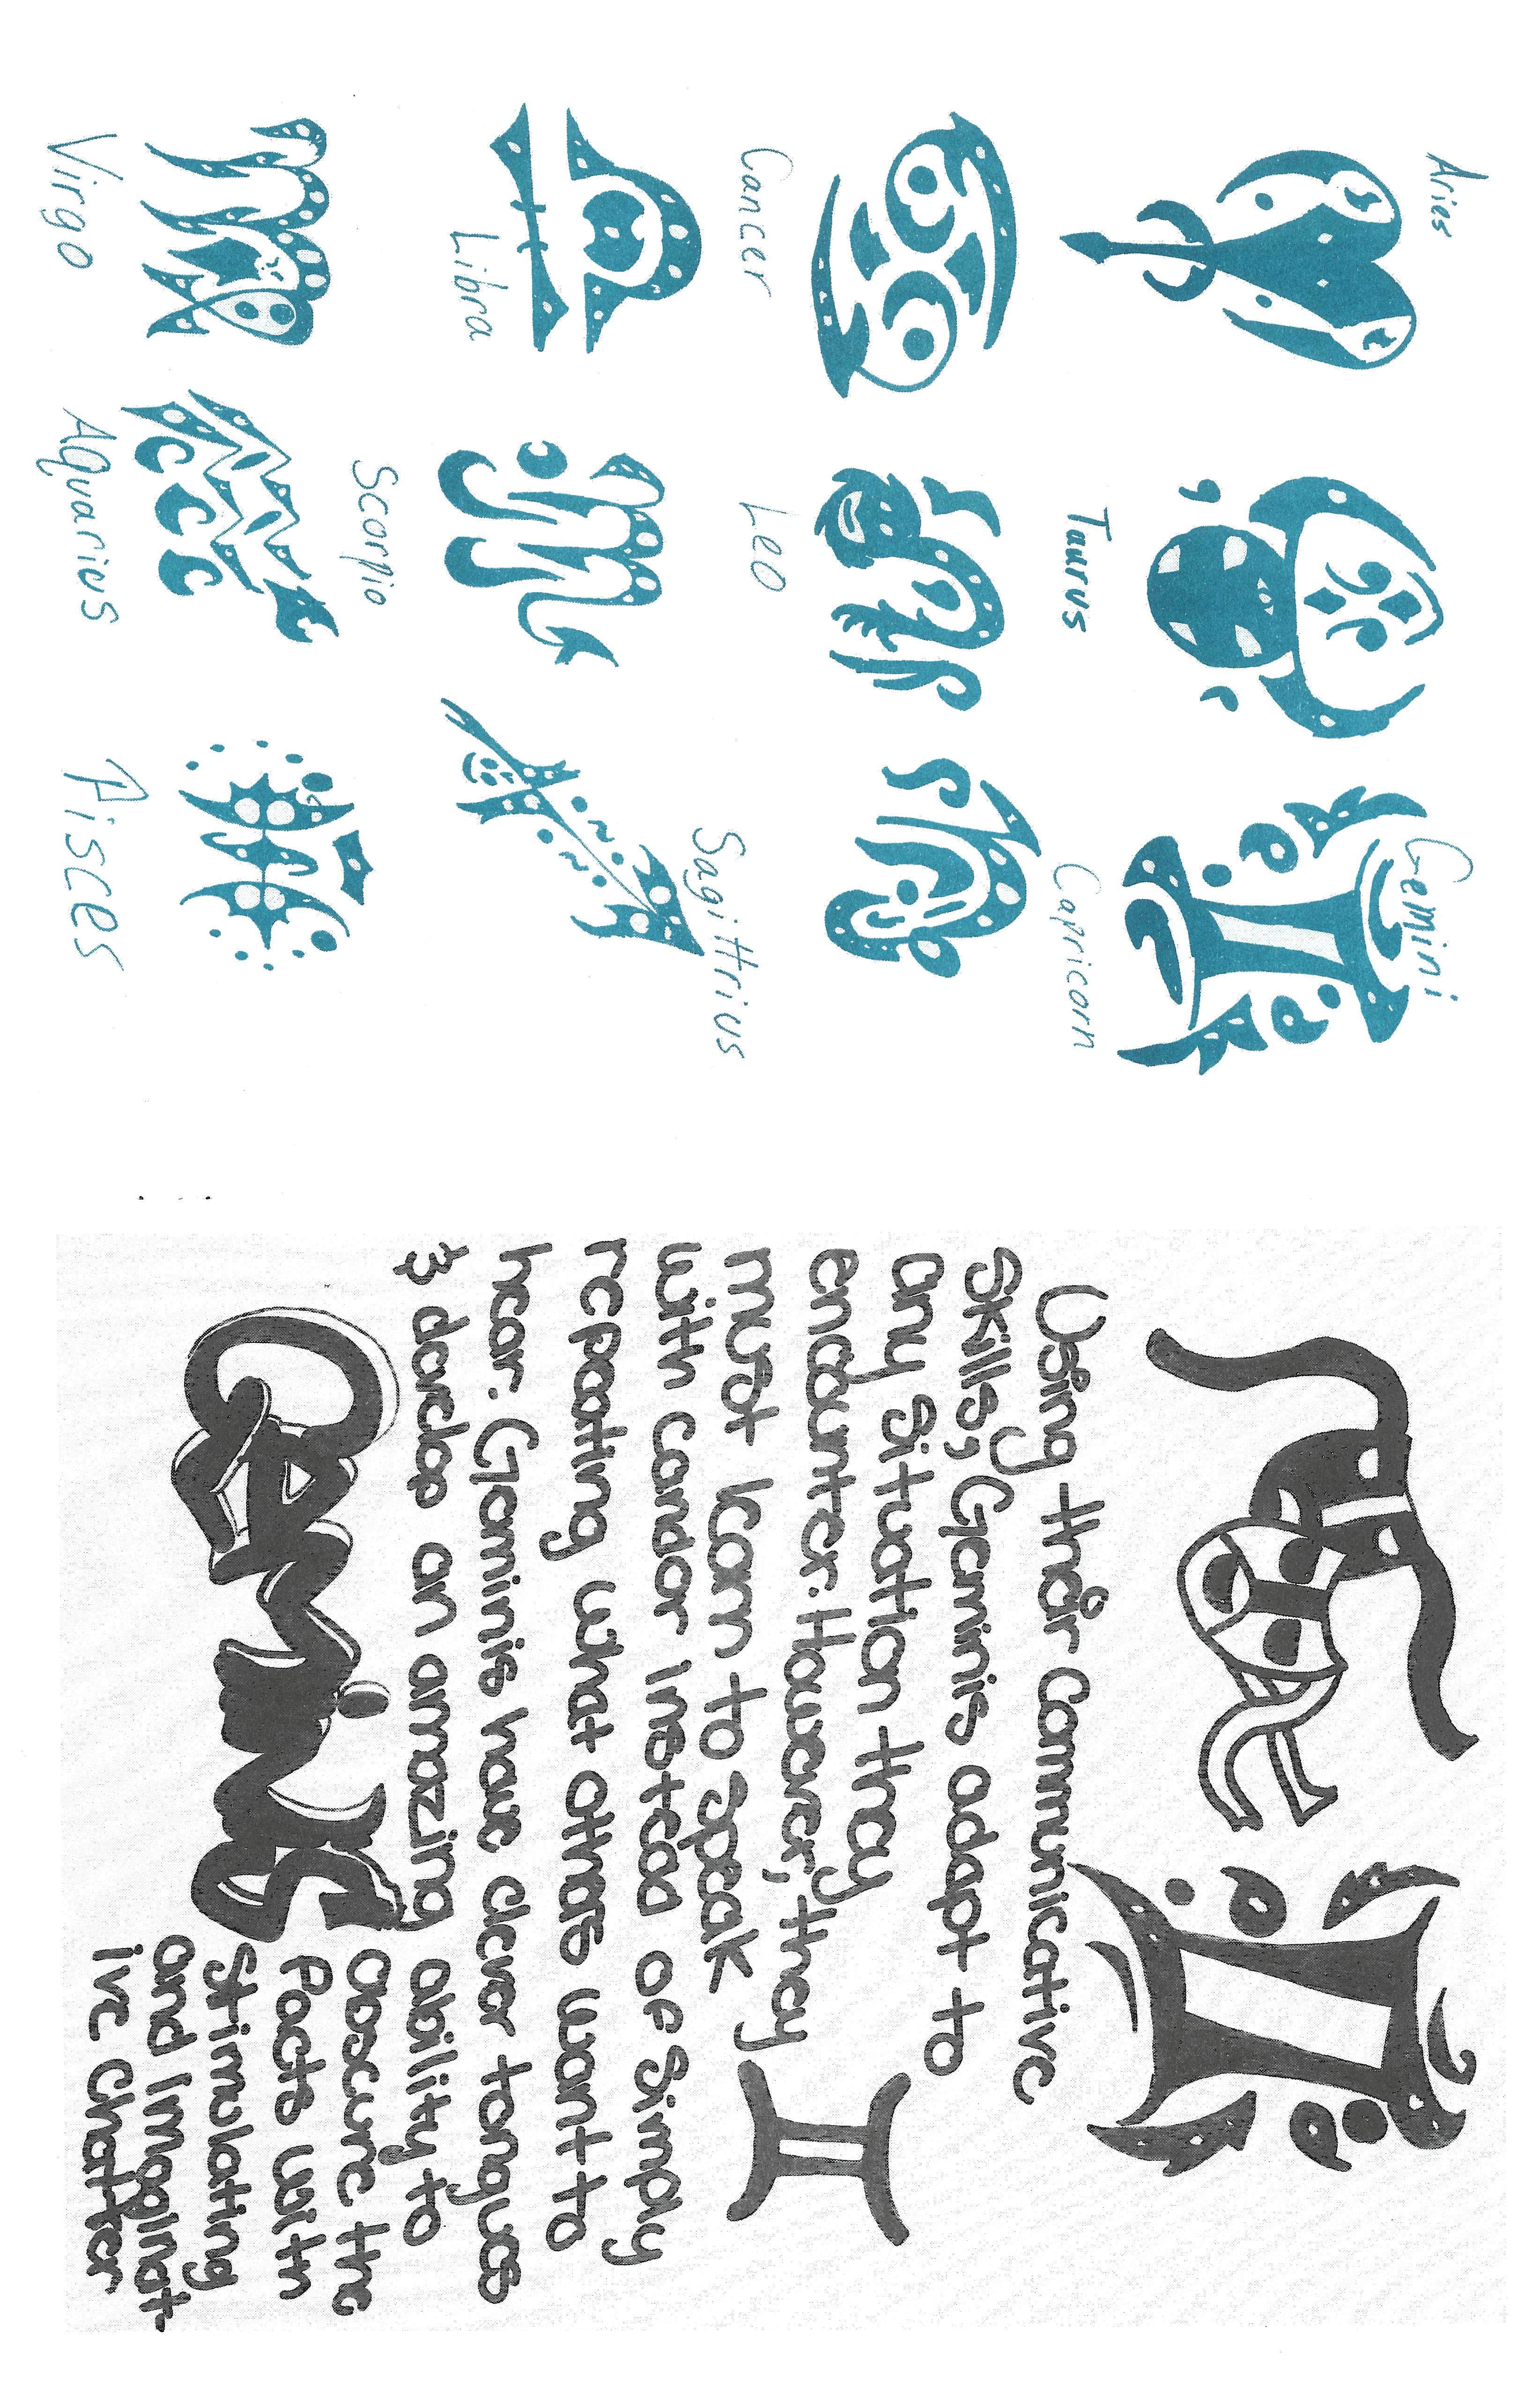 Aries
Taurus
Gemini
Cancer
Leo
Capricorn
Libra
Scorpio
Sagittrius
Virgo
Aquarius
Pisces
Using their communicative
skills, Geminis adapt to
any situation they
encounter. However, they
must learn to speak
with candor instead of simply
repeating what others want to
hear. Geminis have clever tongues
& develop an amazing ability to
obscure the
facts with
stimulating
and imaginat-
ive chatter.
Geminis